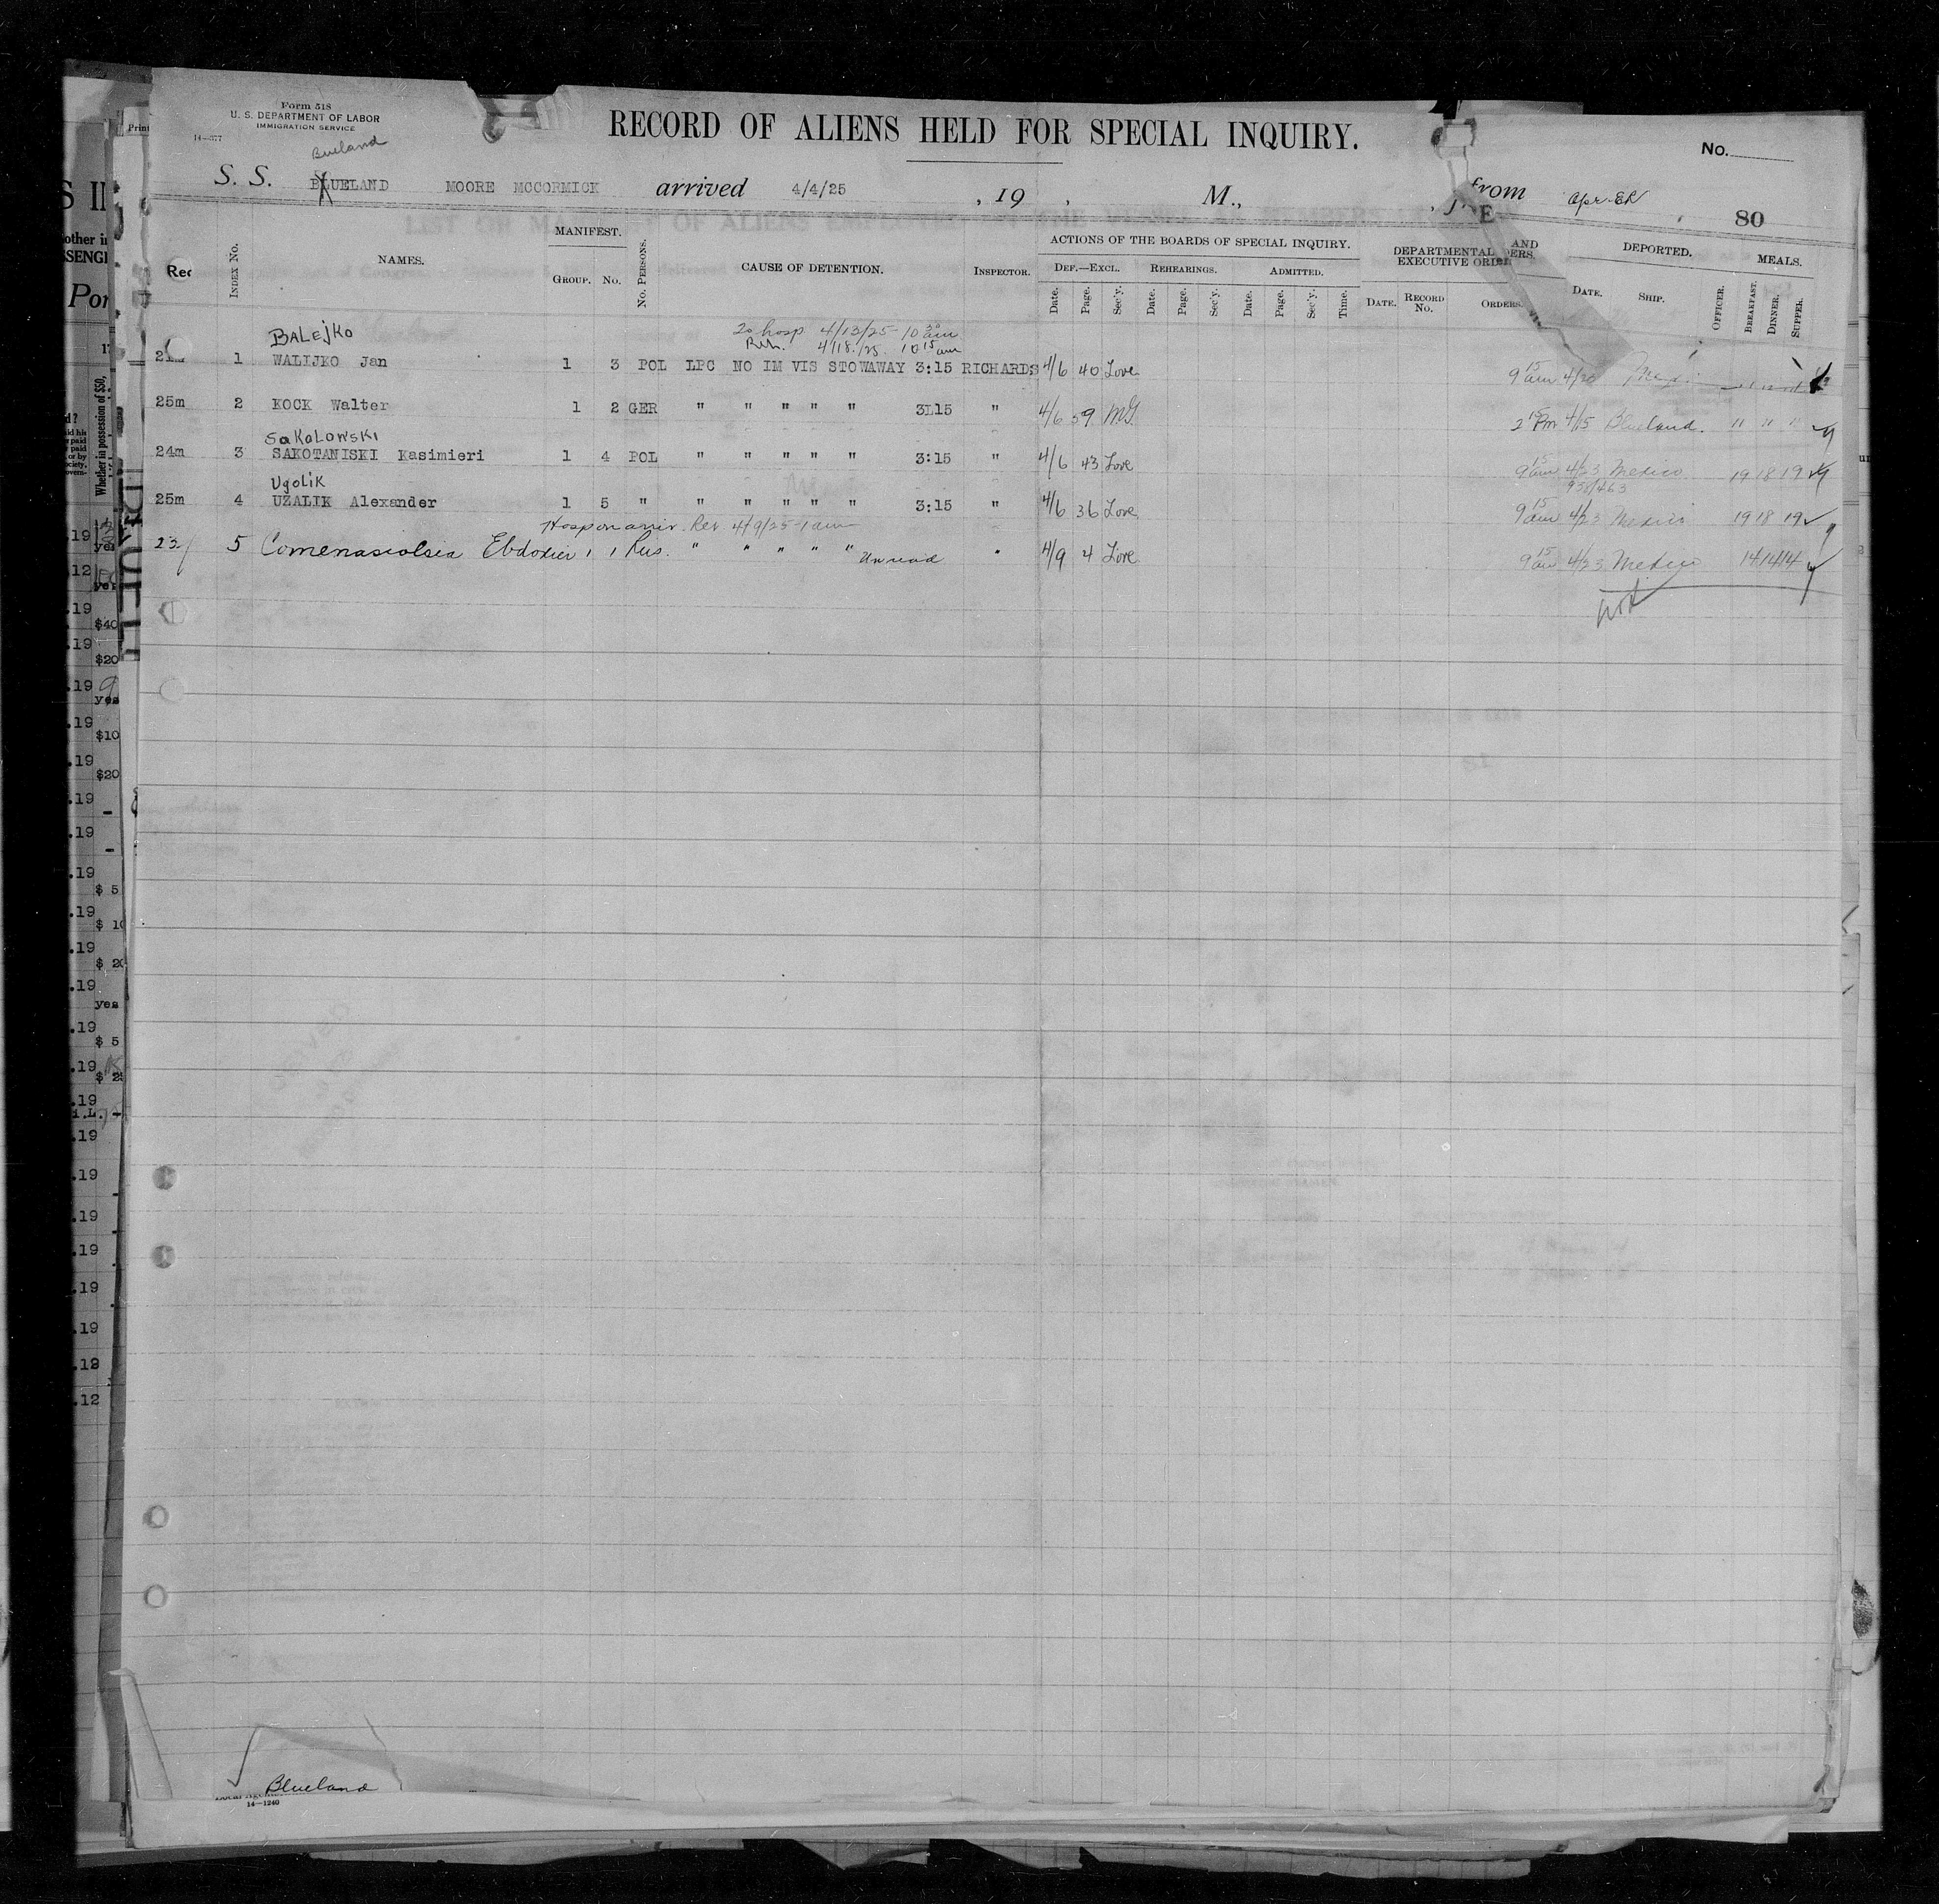 Form 518
U. S. DEPARTMENT OF LABOR
IMMIGRATION SERVICE
14—377
RECORD OF ALIENS HELD FOR SPECIAL INQUIRY.
No.
Blueland
S. S. BLUELAND MOORE MCCORMICK arrived 4/4/25 , 19 , M., from
80
INDEX No.
NAMES.
MANIFEST.
GROUP. No.
No. PERSONS.
CAUSE OF DETENTION.
INSPECTOR.
ACTIONS OF THE BOARDS OF SPECIAL INQUIRY.
DEF.—EXCL. REHEARINGS. ADMITTED.
Date. Page. Sec'y. Date. Page. Sec'y. Date. Page. Sec'y. Time.
DEPARTMENTAL AND
EXECUTIVE ORDERS.
DATE. RECORD No. ORDERS.
DEPORTED.
DATE. SHIP.
OFFICER.
MEALS.
BREAKFAST. DINNER. SUPPER.
BALEJKO
To hosp. 4/13/25 - 10 30 am
Ret. 4/18/25. 10 15 am
1 WALIJKO Jan 1 3 POL LPC NO IM VIS STOWAWAY 3:15 RICHARDS 4/6 40 Love 9 15 am
25m 2 KOCK Walter 1 2 GER " " " " " 3L15 " 4/6 59 McG 2 15 Pm 4/15 Blueland. 11 11 11
SaKoLowski
24m 3 SAKOTANISKI Kasimieri 1 4 POL " " " " " 3:15 " 4/6 43 Love 9 15 am 4/23 Mexico 19 18 19
Ugolik
25m 4 UZALIK Alexander 1 5 " " " " " " 3:15 " 4/6 36 Love 9 15 am 4/23 Mexico 19 18 19
Hosp on arriv. Rel 4/9/25 - 1 am
23f 5 Comenasiolsia Ebdoxier 1 1 Rus. " " " " " " 4/9 4 Love 9 15 am 4/23 Mexico 14 14 14
Blueland
14—1240